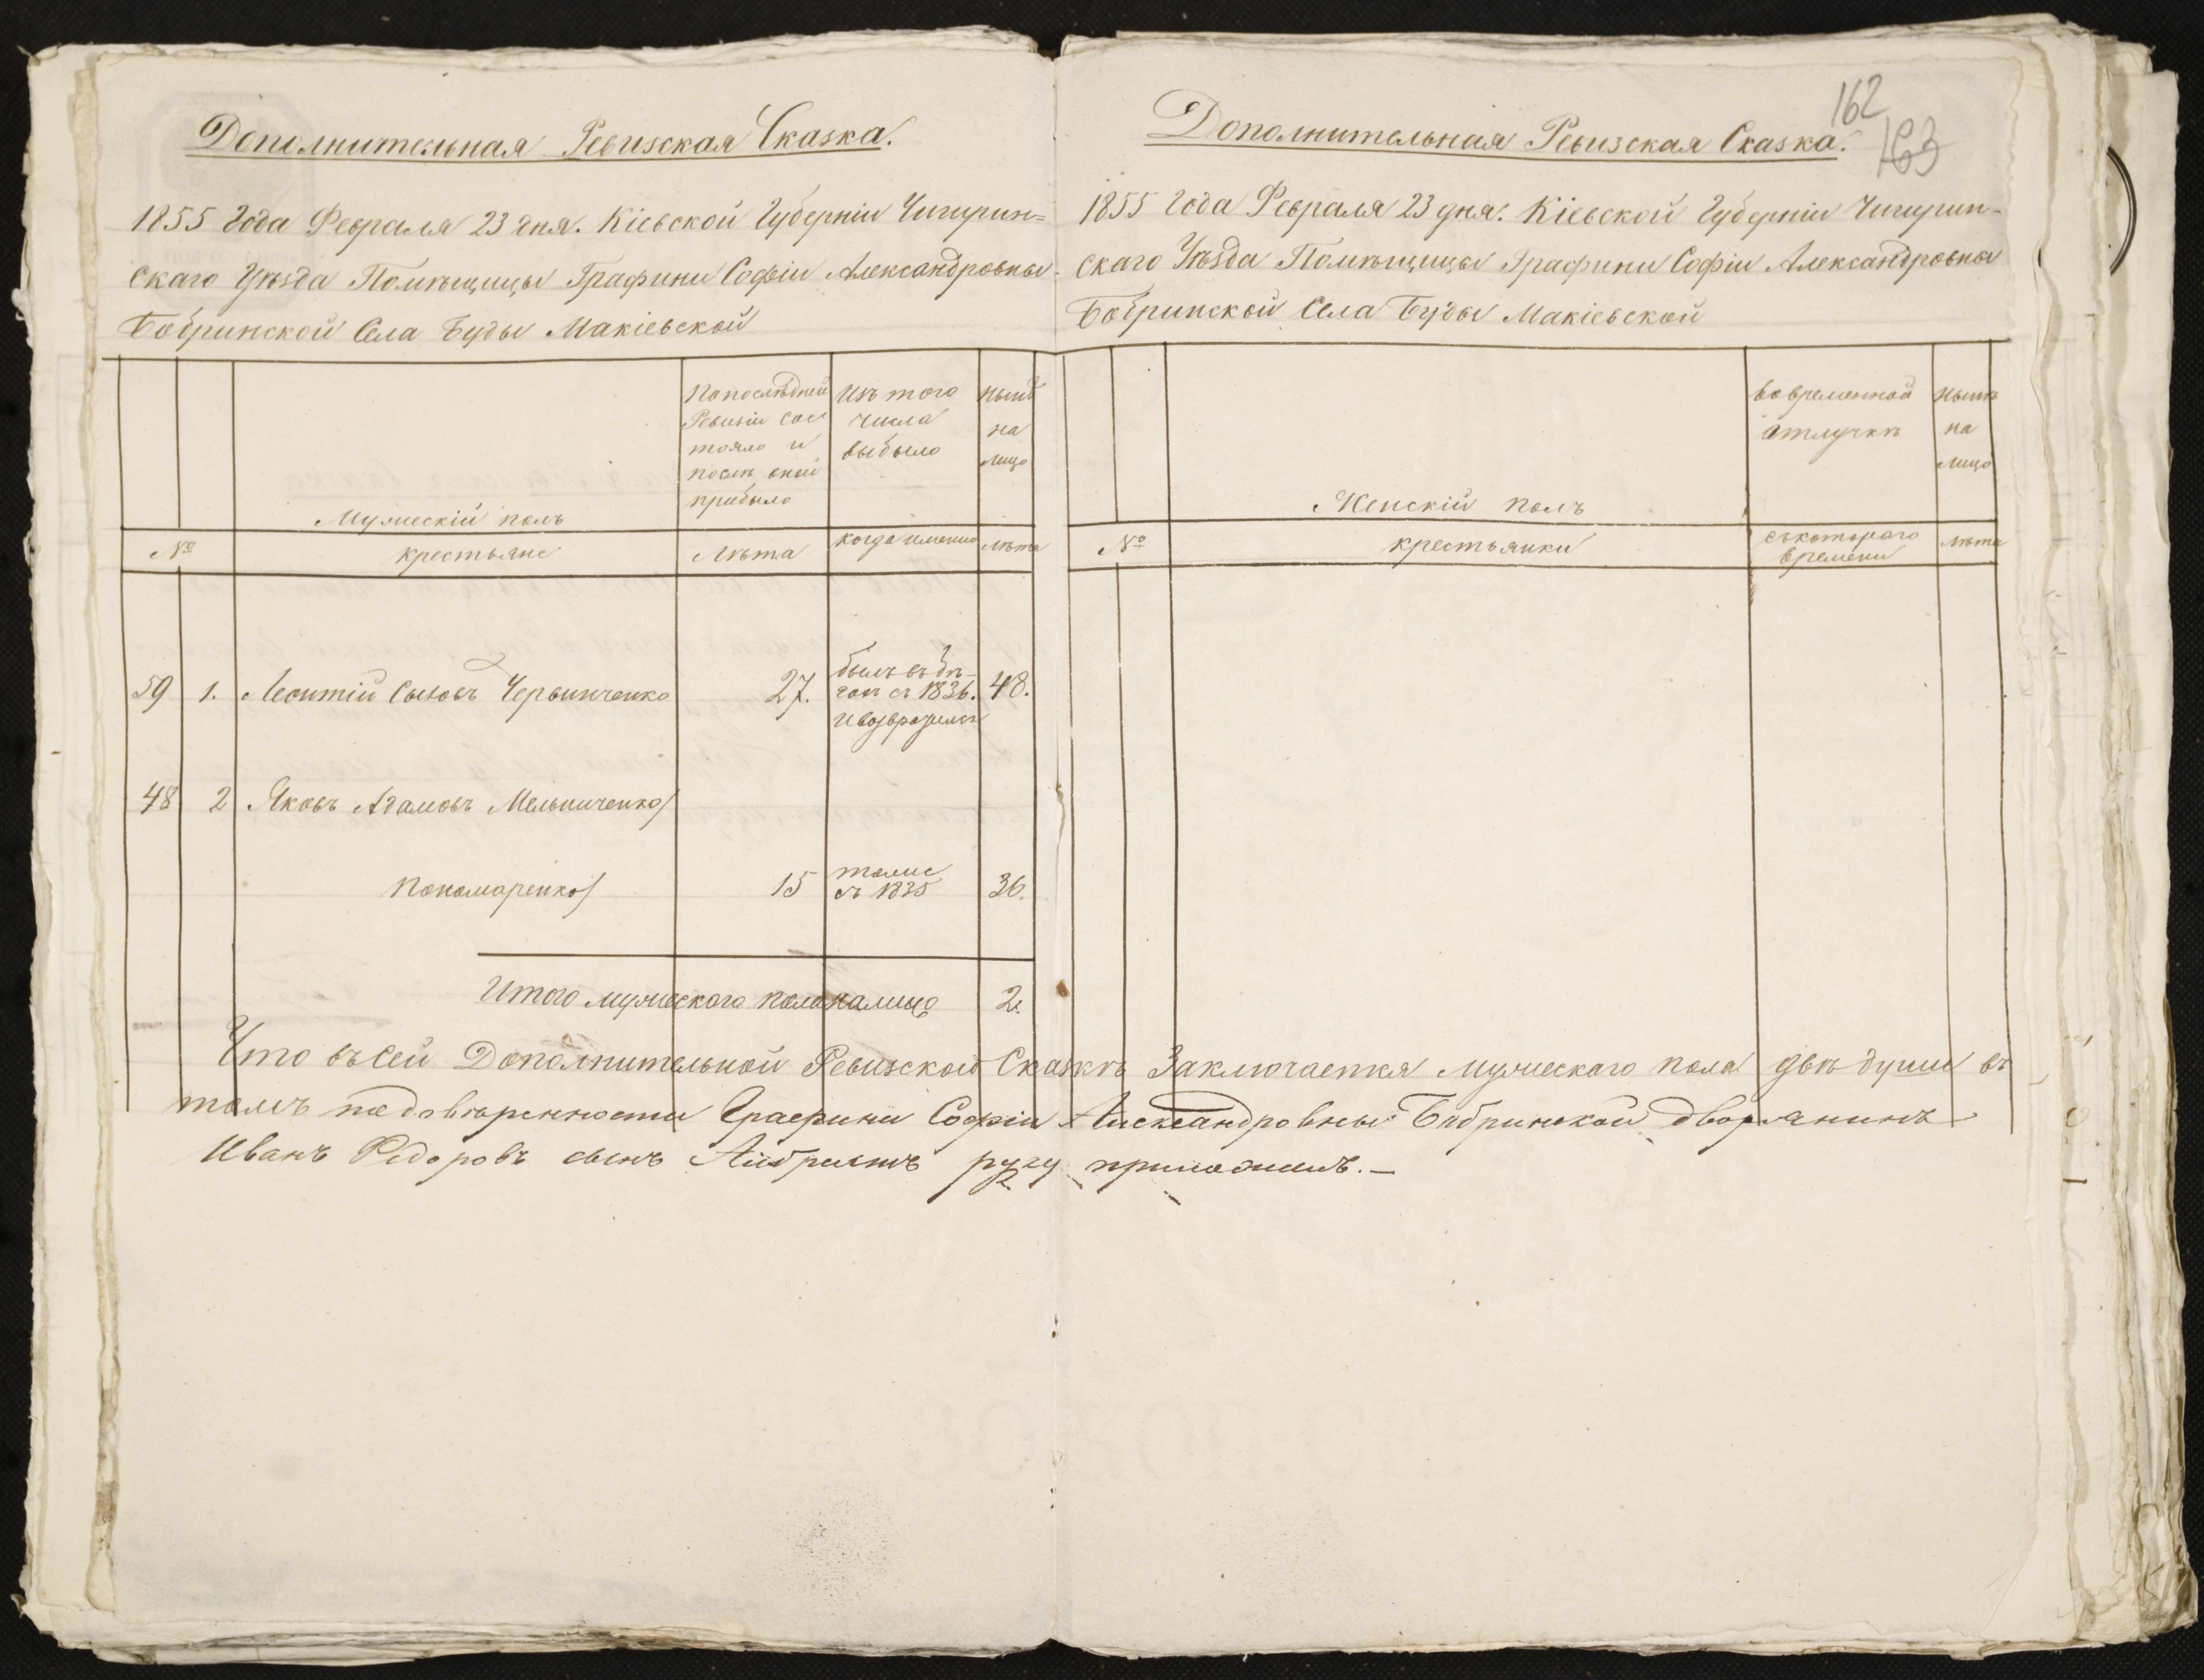 Дополнительная Ревизская Сказка.
1855 Года Февраля 23 дня. Кіевской Губерніи Чигирин=
скаго Уѣзда Помѣщицы Графини Софіи Александровны
Бобринской Села Буды Макіевской
По послѣдней
Ревизіи сос
тояло и
послѣ оной
прибыло
Изъ того
числа
выбыло
Нынѣ
на
лицо
Мужескій полъ
№
крестьяне
Лѣта
когда именно
лѣта
59 1. Леонтій Сысоевъ Червинченко 27.
былъ въ бѣ-
гахъ съ 1836.
и возвратился
48.
48 2 Яковъ Адамовъ Мельниченко/
Пономаренко/ 15
тоже
съ 1835
36.
Итого мужескаго пола налицо 2.
162
163
Дополнительная Ревизская Сказка.
1855 Года Февраля 23 дня. Кіевской Губерніи Чигирин-
скаго Уѣзда Помѣщицы Графини Софіи Александровны
Бобринской Села Буды Макіевской
Во временной
отлучкѣ
Нынѣ
на
лицо
Женскій полъ
№
крестьянки
съ котораго
времени
лѣта
Что въ сей Дополнительной Ревизской Сказкѣ Заключается мужескаго пола двѣ души въ
томъ по довѣренности Графини Софіи Александровны Бобринской дворянинъ
Иванъ Федоровъ сынъ руку приложилъ.—